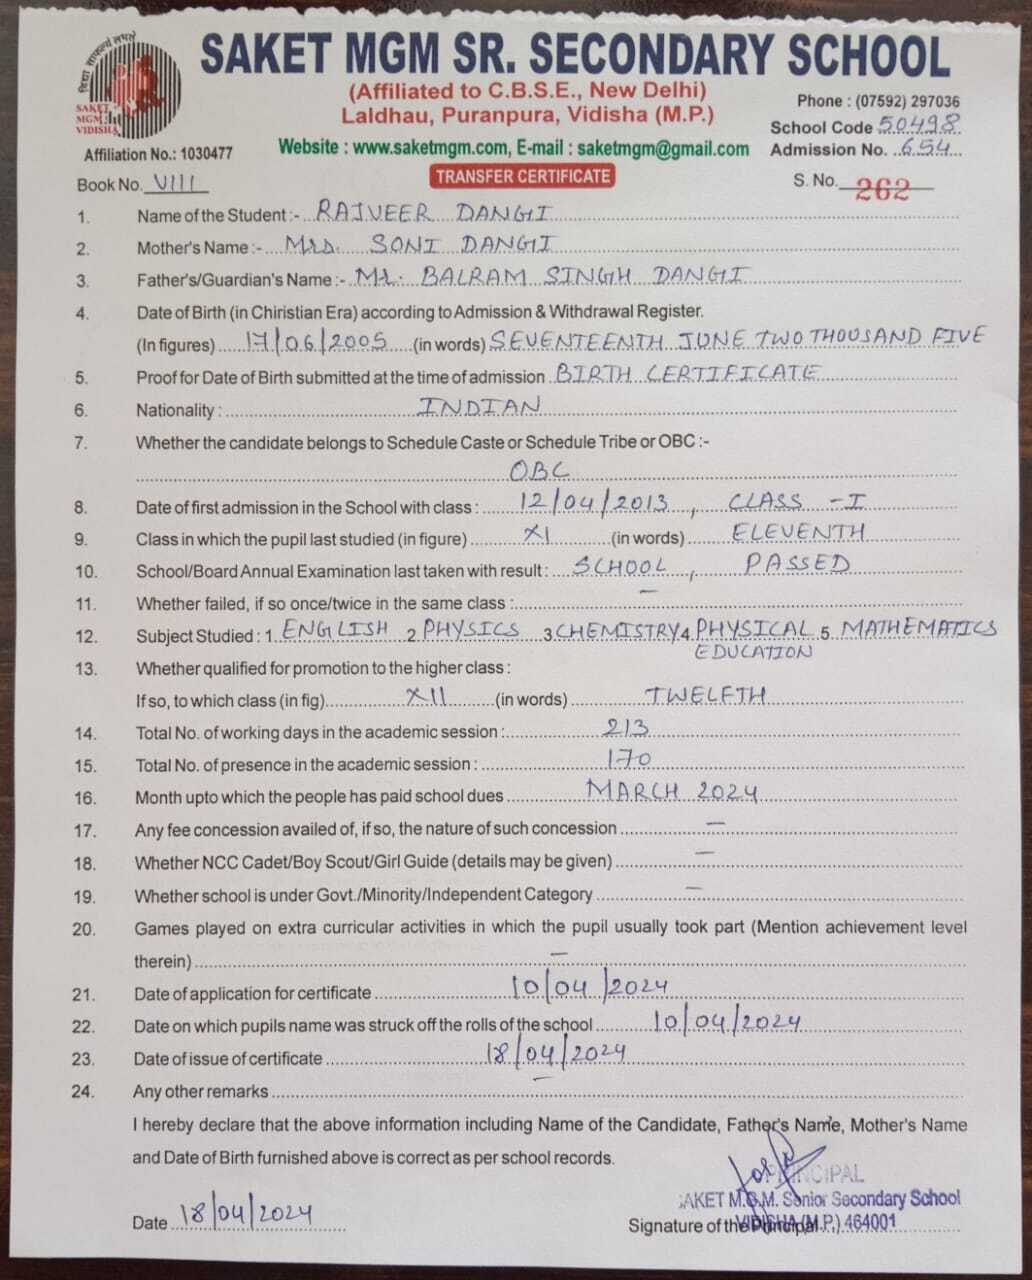 विद्या साफल्यं लभते
SAKET
MGM
VIDISHA
SAKET MGM SR. SECONDARY SCHOOL
(Affiliated to C.B.S.E., New Delhi)
Laldhau, Puranpura, Vidisha (M.P.)
Phone : (07592) 297036
School Code 50498
Affiliation No.: 1030477
Website : www.saketmgm.com, E-mail : saketmgm@gmail.com
Admission No. 654
Book No. VIII
TRANSFER CERTIFICATE
S. No. 262
1. Name of the Student :- RAJVEER DANGI
2. Mother's Name :- Mrs. SONI DANGI
3. Father's/Guardian's Name :- Mr. BALRAM SINGH DANGI
4. Date of Birth (in Chiristian Era) according to Admission & Withdrawal Register.
(In figures) 17/06/2005 (in words) SEVENTEENTH JUNE TWO THOUSAND FIVE
5. Proof for Date of Birth submitted at the time of admission BIRTH CERTIFICATE
6. Nationality : INDIAN
7. Whether the candidate belongs to Schedule Caste or Schedule Tribe or OBC :-
OBC
8. Date of first admission in the School with class : 12/04/2013, CLASS - I
9. Class in which the pupil last studied (in figure) XI (in words) ELEVENTH
10. School/Board Annual Examination last taken with result : SCHOOL, PASSED
11. Whether failed, if so once/twice in the same class : —
12. Subject Studied : 1. ENGLISH 2. PHYSICS 3. CHEMISTRY 4. PHYSICAL 5. MATHEMATICS
EDUCATION
13. Whether qualified for promotion to the higher class :
If so, to which class (in fig) XII (in words) TWELFTH
14. Total No. of working days in the academic session : 213
15. Total No. of presence in the academic session : 170
16. Month upto which the people has paid school dues MARCH 2024
17. Any fee concession availed of, if so, the nature of such concession —
18. Whether NCC Cadet/Boy Scout/Girl Guide (details may be given) —
19. Whether school is under Govt./Minority/Independent Category —
20. Games played on extra curricular activities in which the pupil usually took part (Mention achievement level
therein) —
21. Date of application for certificate 10/04/2024
22. Date on which pupils name was struck off the rolls of the school 10/04/2024
23. Date of issue of certificate 18/04/2024
24. Any other remarks —
I hereby declare that the above information including Name of the Candidate, Father's Name, Mother's Name
and Date of Birth furnished above is correct as per school records.
PRINCIPAL
SAKET M.G.M. Senior Secondary School
VIDISHA (M.P.) 464001
Date 18/04/2024
Signature of the Principal